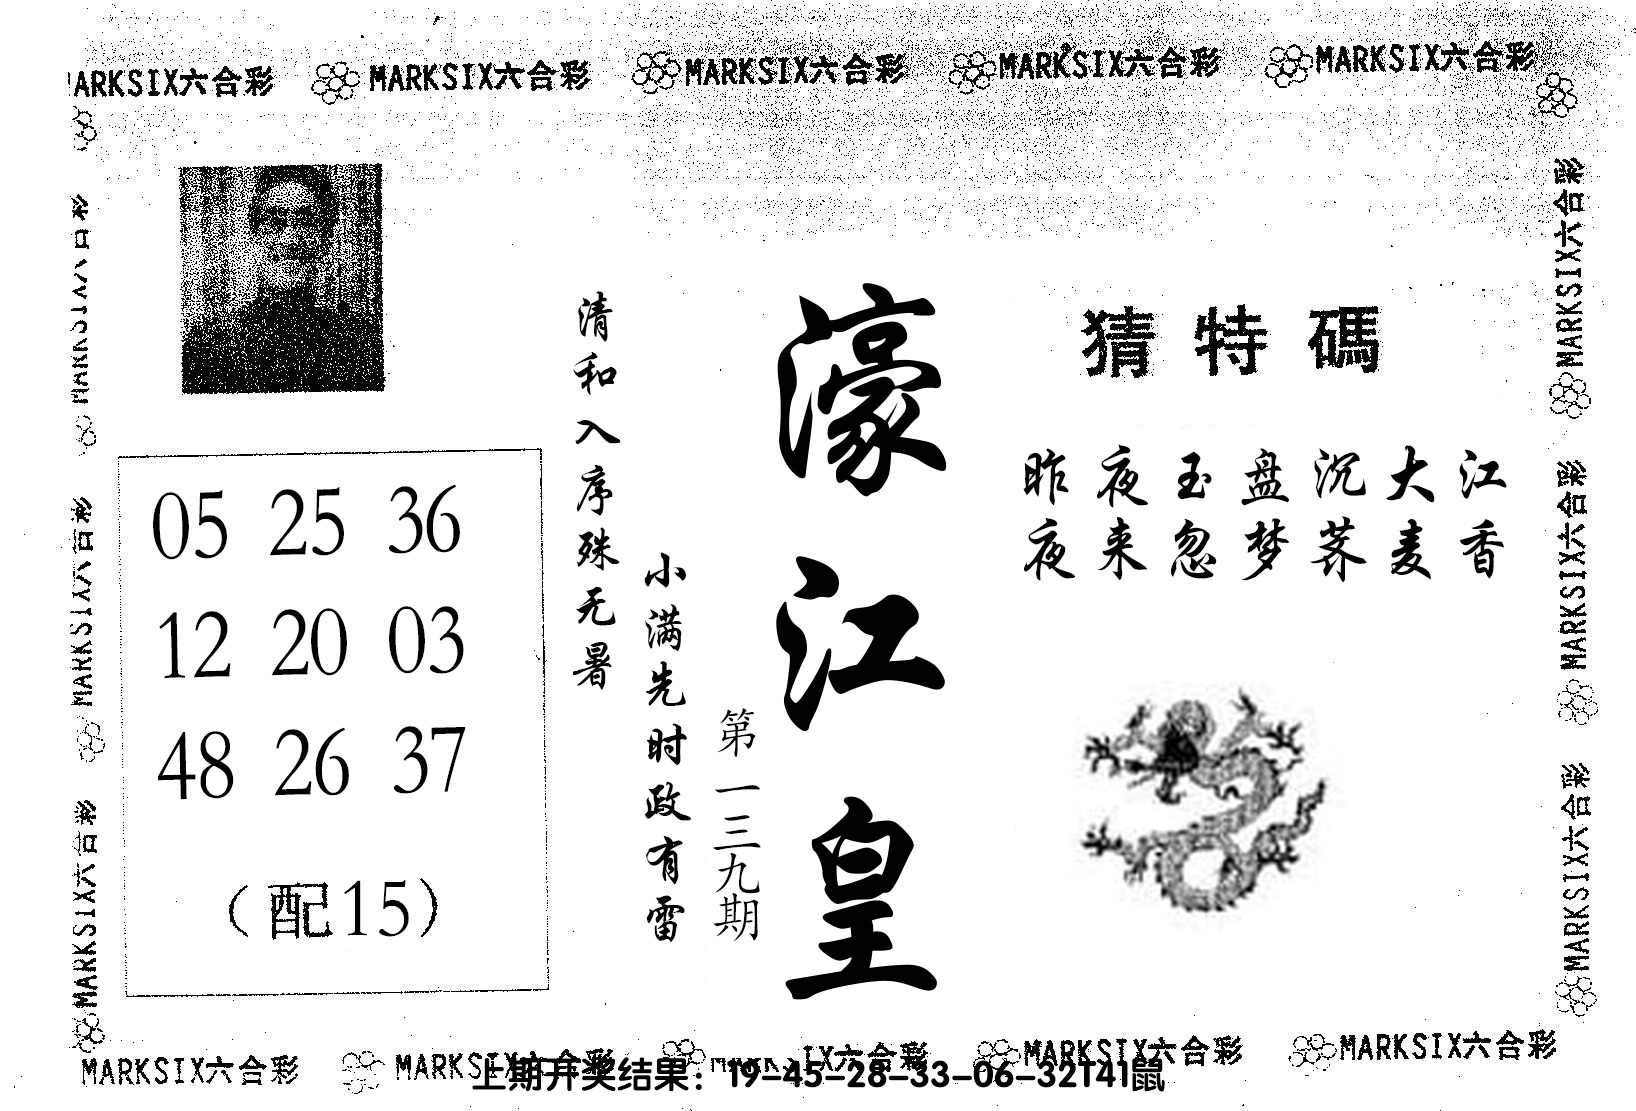 MARKSIX六合彩 MARKSIX六合彩 MARKSIX六合彩 MARKSIX六合彩 MARKSIX六合彩
猜特碼
昨夜玉盘沉大江
夜来忽梦荞麦香
濠江皇
第一三九期
清和入序殊无暑
小满先时政有雷
05 25 36
12 20 03
48 26 37
（配15）
MARKSIX六合彩
MARKSIX六合彩
MARKSIX六合彩
MARKSIX六合彩
MARKSIX六合彩
MARKSIX六合彩
MARKSIX六合彩 MARKSIX六合彩 MARKSIX六合彩 MARKSIX六合彩
上期开奖结果：19-45-28-33-06-32T41鼠